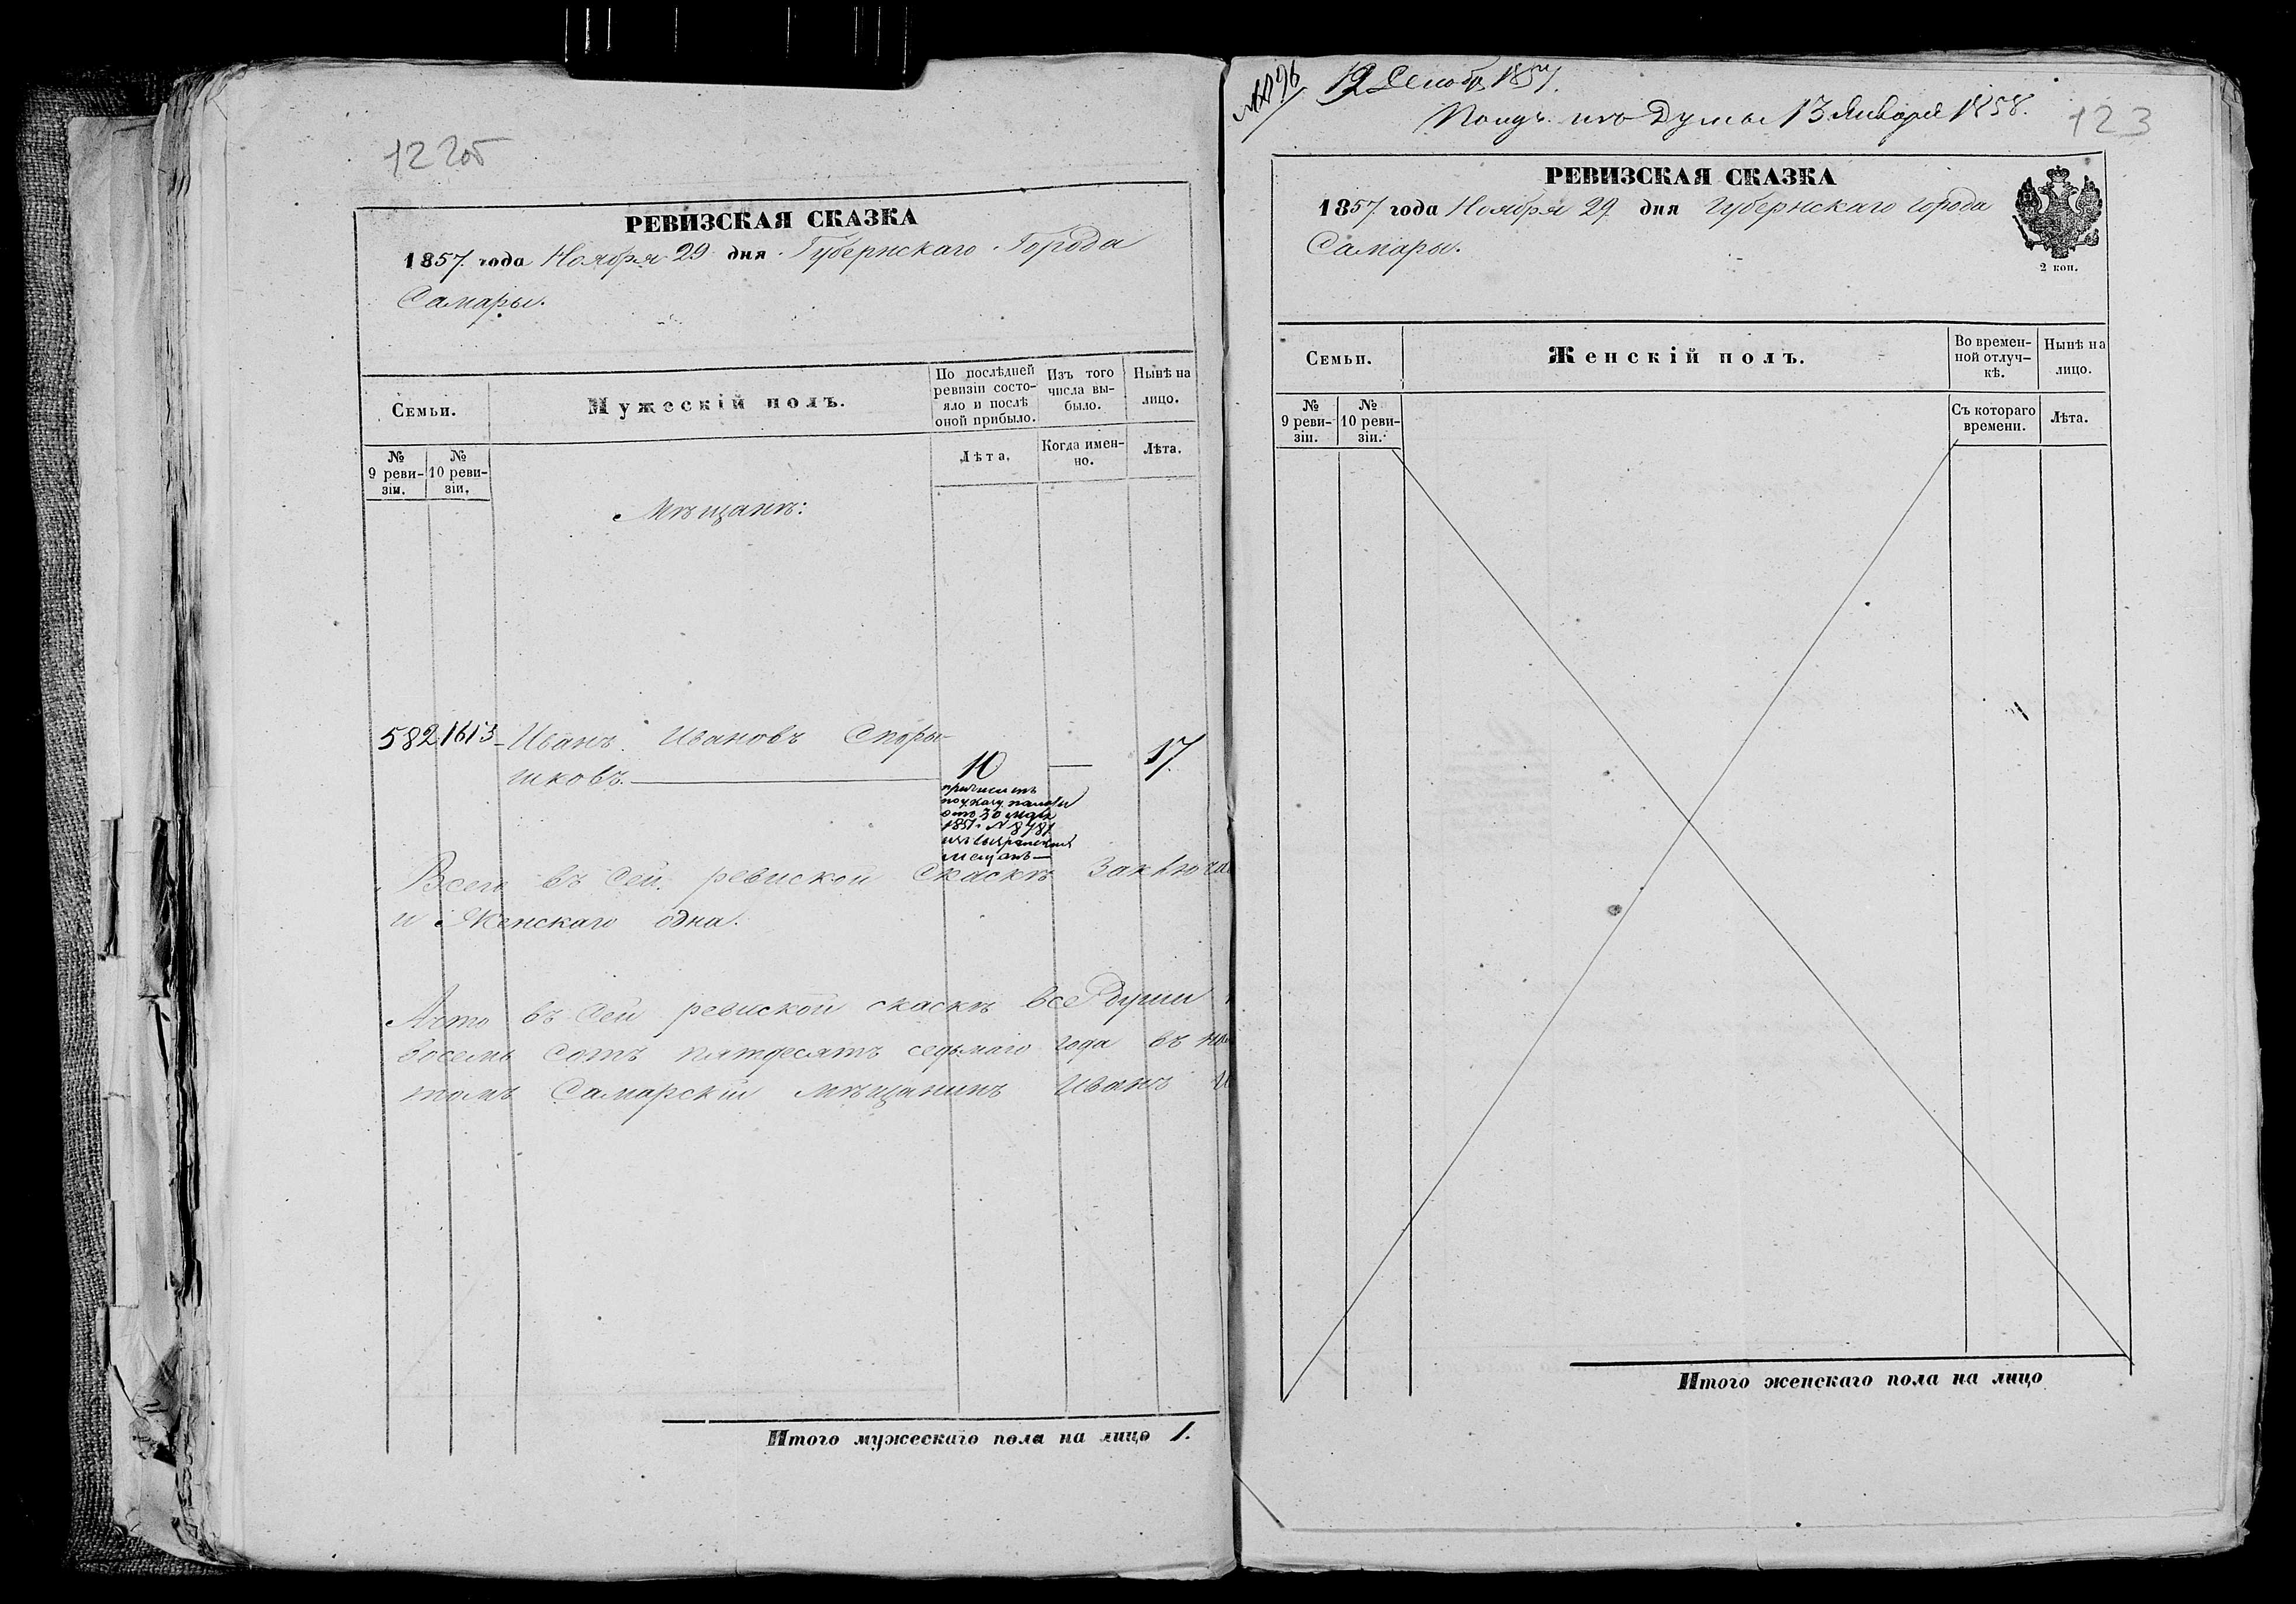 122об
РЕВИЗСКАЯ СКАЗКА
1857 года Ноября 29 дня Губернскаго Города
Самары.
Семьи.
Мужескій полъ.
По послѣдней ревизіи состо-
яло и послѣ
оной прибыло.
Изъ того
числа вы-
было.
Нынѣ на
лицо.
№
9 реви-
зіи.
№
10 реви-
зіи.
Лѣта.
Когда имен-
но.
Лѣта.
Мѣщанъ:
582 1613 Иванъ Ивановъ Споры-
шковъ. 10 — 17.
причисленъ
по указу палаты
отъ 30 мая
1851 № 8781
изъ сызранскихъ
мещанъ
Всего въ сей ревиской скаскѣ заключа
и Женскаго одна.
А что въ сей ревиской скаскѣ все души
восемь сотъ пятдесятъ седьмаго года въ
томъ Самарскій мѣщанинъ Иванъ И
Итого мужескаго пола на лицо 1.
12 Декабр 1857.
Получ. изъ Думы 13 Января 1858.
123
РЕВИЗСКАЯ СКАЗКА
1857 года Ноября 29 дня Губернскаго города
Самары.
2 коп.
Семьи.
Женскій полъ.
Во времен-
ной отлуч-
кѣ.
Нынѣ на
лицо.
№
9 реви-
зіи.
№
10 реви-
зіи.
Съ котораго
времени.
Лѣта.
Итого женскаго пола на лицо